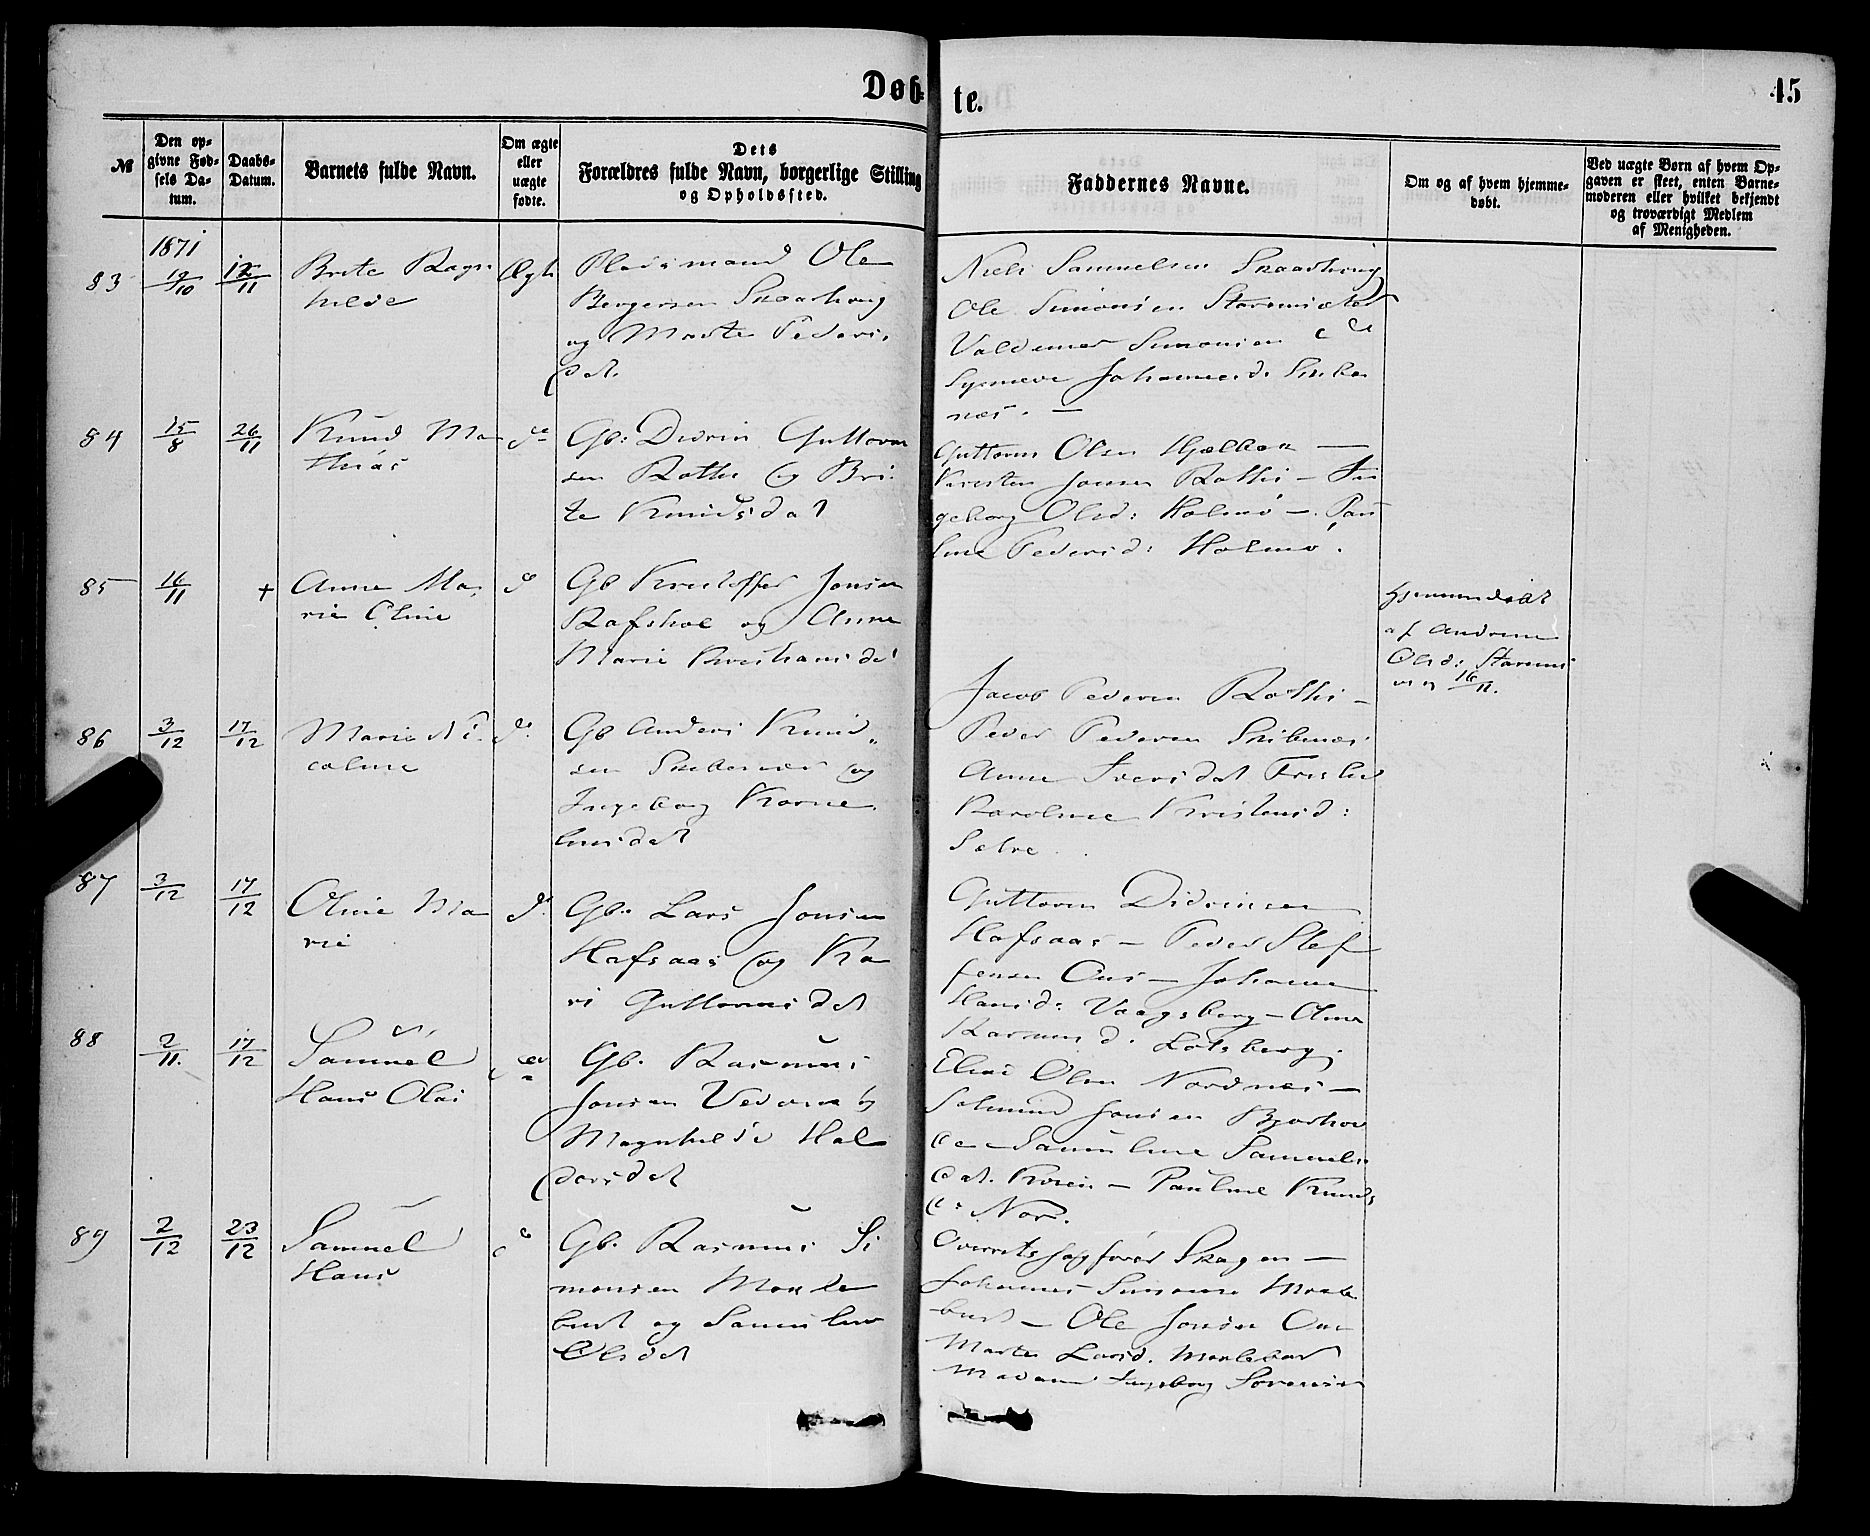 Døb-
te.
45
№
Den op-
givne Fød-
sels Da-
tum.
Daabs-
Datum.
Barnets fulde Navn.
Om ægte
eller
uægte
fødte.
Dets
Forældres fulde Navn, borgerlige Stilling
og Opholdssted.
Faddernes Navne.
Om og af hvem hjemme-
døbt.
Ved uægte Børn af hvem Op-
gaven er skeet, enten Barne-
moderen eller hvilket bekjendt
og troværdigt Medlem
af Menigheden.
1871
83
19/10
12/11
Brite Ragn
hilde
Ægte
Pladsmand Ole
Bergersen
og Marte Peders
dat.
Niels Samuelsen
Ole Simonsen
Valdemar Simonsen
Synneve Johannesd:
næs. —
84
15/8
26/11
Knud Ma
thias
do
Gb: Didrik Guttorm
sen Rothi og Bri
te Knudsdat
Guttorm Olsen Hjelbak —
Kresten Jonsen Rothi — In
geborg Olsd: Holmø — Pau
line Pedersd: Holmø.
85
16/11
+
Anne Ma
rie Oline
do
Gb Kristoffer Jonsen
Rafshol og Anne
Marie Kristiansd
hjemmedøbt
af Andrine
Olsd:
16/11.
86
3/12
17/12
Marie Ni
coline
do
Gb Anders Knud„
sen og
Ingeborg Korne
liusdat
Jacob Pedersen Rothi —
Peder Pedersen Skibenæs
Anne Iversdat
Karoline Kristensd:
87
3/12
17/12
Oline Ma
rie
do
Gb. Lars Jonsen
Hafsaas og Ka
ri Guttormsdat
Guttorm Didriksen
Hafsaas — Peder Stef
fensen Aus — Johanne
Hansd: Vaagsberg — Oline
Rasmusd: Lotsberg
88
2/11.
17/12
Samuel
Hans Olai
do
Gb. Rasmus
Jonsen og
Magnhilde Hal
dorsdat
Elias Olsen Nordnæs —
Salmund Jonsen
Samueline Samuels
dat. — Pauline Knuds
d: Nor.
89
2/12
23/12
Samuel
Hans
do
Gb. Rasmus Si
monsen Maale
bust og Samuline
Olsdat
Overretssagfører Skagen —
Johannes Simonsen Maale
bust — Ole Jonsen
Marte Larsd. Maalebust
Madam Ingeborg